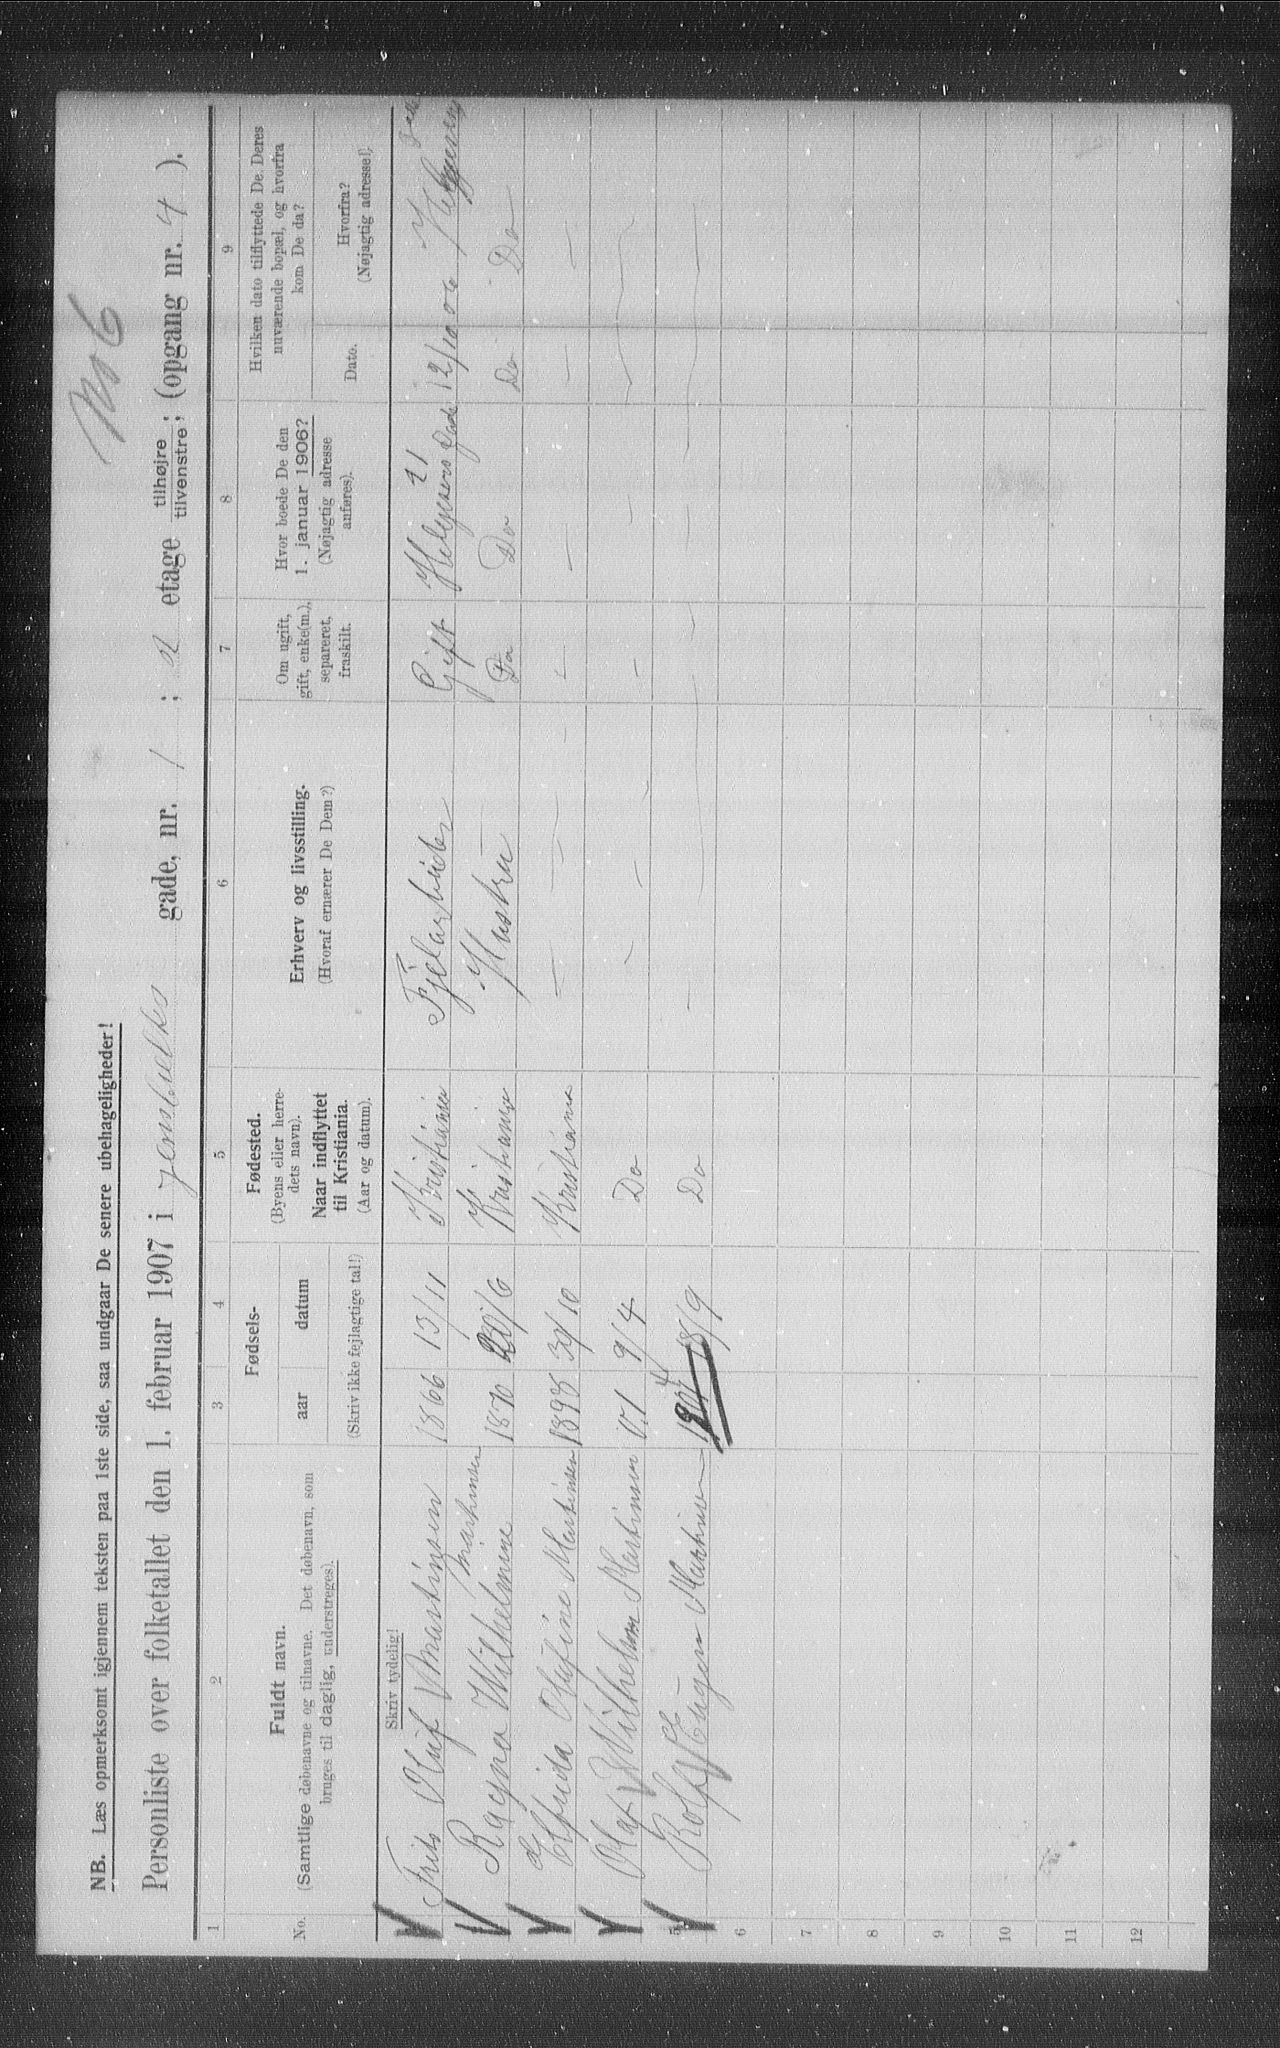 No 6
NB. Læs opmerksomt igjennem teksten paa 1ste side, saa undgaar De senere ubehageligheder!
Personliste over folketallet den 1. februar 1907 i gade, nr. 1 ; 2 etage tilhøjre tilvenstre ; (opgang nr. 4 ).
1 2 3 4 5 6 7 8 9
No.
Fuldt navn.
(Samtlige døbenavne og tilnavne. Det døbenavn, som
bruges til daglig, understreges).
Fødsels-
aar datum
(Skriv ikke fejlagtige tal!)
Fødested.
(Byens eller herre-
dets navn).
Naar indflyttet
til Kristiania.
(Aar og datum).
Erhverv og livsstilling.
(Hvoraf ernærer De Dem?)
Om ugift,
gift, enke(m.),
separeret,
fraskilt.
Hvor boede De den
1. januar 1906?
(Nøjagtig adresse
anføres).
Hvilken dato tilflyttede De Deres
nuværende bopæl, og hvorfra
kom De da?
Dato.
Hvorfra?
(Nøjagtig adresse!)
Skriv tydelig!
Frits Oluf Martinsen 1866 13/11 Kristiania Gift Helgesens Gade 21 12/10 06
Ragna Wilhelmine Martinsen 1870 /6 Kristiania Hustru Do Do Do Do
Elfrida Olufine Martinsen 1895 30/10 Kristiania — — — — —
Olaf Wilhelm Martinsen 01 9/4 Do — — — — —
5 Rolf Eugen Martinsen 18/9 Do — — — —
6
7
8
9
10
11
12